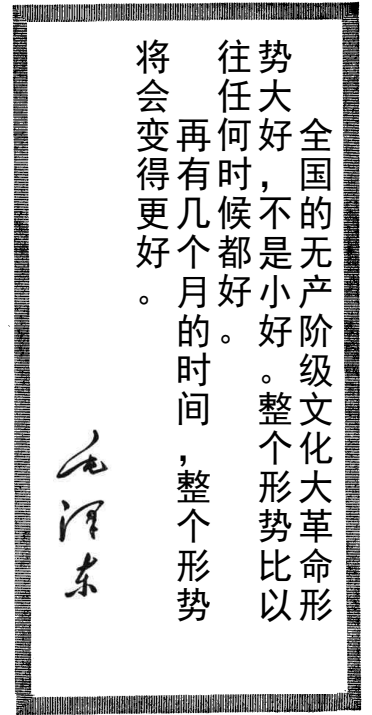 全国的无产阶级文化大革命形
势大好，不是小好。整个形势比以
往任何时候都好。
再有几个月的时间，整个形势
将会变得更好。
毛泽东